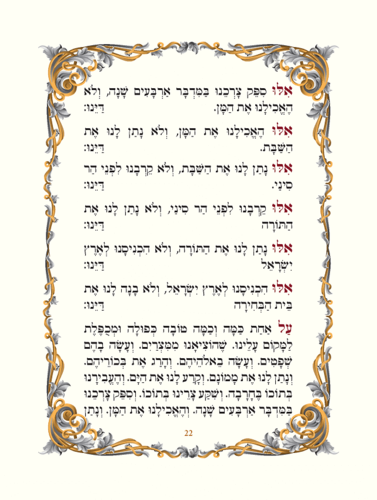 אִלּוּ סִפֵּק צָרְכֵנוּ בַּמִּדְבָּר אַרְבָּעִים שָׁנָה, וְלֹא
הֶאֱכִילָנוּ אֶת הַמָּן. דַּיֵּנוּ:
אִלּוּ הֶאֱכִילָנוּ אֶת הַמָּן, וְלֹא נָתַן לָנוּ אֶת
הַשַּׁבָּת. דַּיֵּנוּ:
אִלּוּ נָתַן לָנוּ אֶת הַשַּׁבָּת, וְלֹא קֵרְבָנוּ לִפְנֵי הַר
סִינַי. דַּיֵּנוּ:
אִלּוּ קֵרְבָנוּ לִפְנֵי הַר סִינַי, וְלֹא נָתַן לָנוּ אֶת
הַתּוֹרָה דַּיֵּנוּ:
אִלּוּ נָתַן לָנוּ אֶת הַתּוֹרָה, וְלֹא הִכְנִיסָנוּ לְאֶרֶץ
יִשְׂרָאֵל דַּיֵּנוּ:
אִלּוּ הִכְנִיסָנוּ לְאֶרֶץ יִשְׂרָאֵל, וְלֹא בָנָה לָנוּ אֶת
בֵּית הַבְּחִירָה דַּיֵּנוּ:
עַל אַחַת כַּמָּה וְכַמָּה טוֹבָה כְפוּלָה וּמְכֻפֶּלֶת
לַמָּקוֹם עָלֵינוּ. שֶׁהוֹצִיאָנוּ מִמִּצְרַיִם. וְעָשָׂה בָהֶם
שְׁפָטִים. וְעָשָׂה בֵאלֹהֵיהֶם. וְהָרַג אֶת בְּכוֹרֵיהֶם.
וְנָתַן לָנוּ אֶת מָמוֹנָם. וְקָרַע לָנוּ אֶת הַיָּם. וְהֶעֱבִירָנוּ
בְתוֹכוֹ בֶּחָרָבָה. וְשִׁקַּע צָרֵינוּ בְּתוֹכוֹ. וְסִפֵּק צָרְכֵנוּ
בַּמִּדְבָּר אַרְבָּעִים שָׁנָה. וְהֶאֱכִילָנוּ אֶת הַמָּן. וְנָתַן
22